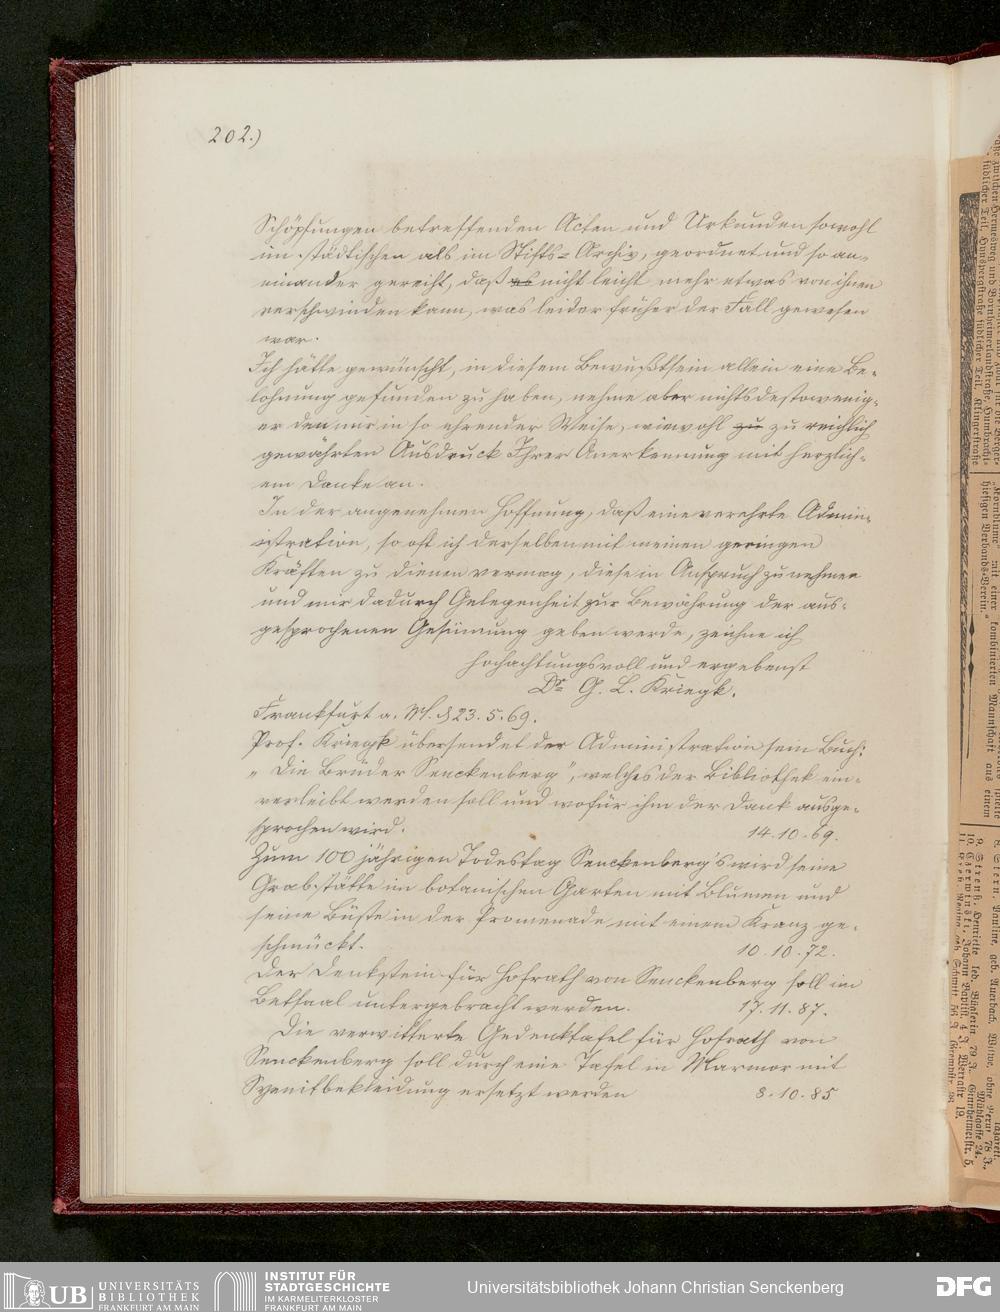 202.)
Schöpfungen betreffenden Acten und Urkunden sowohl
im städtischen als im Stifts-Archiv, geordnet und so an-
einander gereiht, daß es nicht leicht mehr etwas von ihnen
verschwinden kann, was leider früher der Fall gewesen
war.
Ich hätte gewünscht, in diesem Bewußtsein allein eine Be-
lohnung gefunden zu haben, nehme aber nichtsdestowenig-
er den mir in so ehrender Weise, wiewohl zu zu reichlich
gewährten Ausdruck Ihrer Anerkennung mit herzlich-
em Danke an.
In der angenehmen Hoffnung, daß eine verehrte Admin-
istration, so oft ich derselben mit meinen geringen
Kräften zu dienen vermag, diese in Anspruch zu nehmen
und mir dadurch Gelegenheit zur Bewährung der aus-
gesprochenen Gesinnung geben werde, zeichne ich
hochachtungsvoll und ergebenst
Dr G. L. Kriegk.
Frankfurt a. M. d 23. 5. 69.
Prof. Kriegk übersendet der Administration sein Buch:
„Die Brüder Senckenberg", welches der Bibliothek ein-
verleibt werden soll und wofür ihm der Dank ausge-
sprochen wird. 14. 10. 69.
Zum 100 jährigen Todestag Senckenberg's wird seine
Grabstätte im botanischen Garten mit Blumen und
seine Büste in der Promenade mit einem Kranz ge-
schmückt. 10. 10. 72.
Der Denkstein für Hofrath von Senckenberg soll im
Betsaal untergebracht werden. 17. 11. 87.
Die verwitterte Gedenktafel für Hofrath von
Senckenberg soll durch eine Tafel in Marmor mit
Syenitbekleidung ersetzt werden 8. 10. 85
UB UNIVERSITÄTS
BIBLIOTHEK
FRANKFURT AM MAIN
INSTITUT FÜR
STADTGESCHICHTE
IM KARMELITERKLOSTER
FRANKFURT AM MAIN
Universitätsbibliothek Johann Christian Senckenberg
DFG